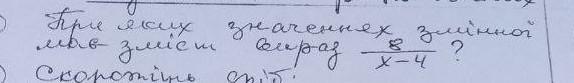 При яких значеннях змінної
має зміст вираз 8/(x-4) ?
Скоротіть дріб: